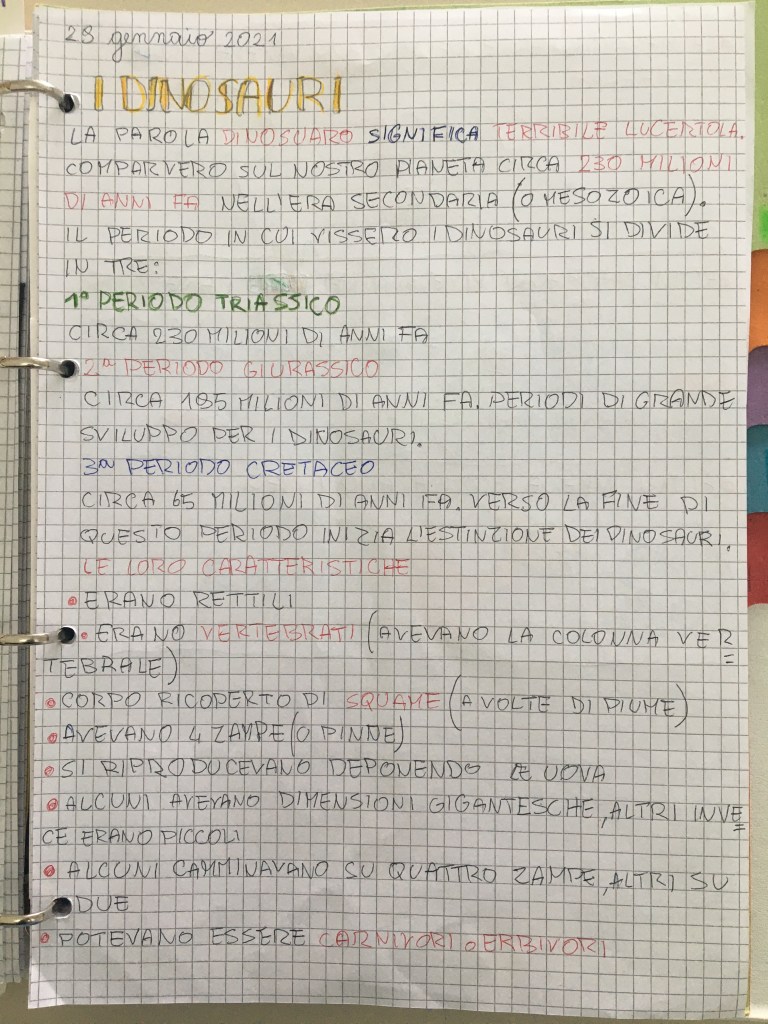 28 gennaio 2021
I DINOSAURI
LA PAROLA DINOSUARO SIGNIFICA TERRIBILE LUCERTOLA.
COMPARVERO SUL NOSTRO PIANETA CIRCA 230 MILIONI
DI ANNI FA NELL'ERA SECONDARIA (O MESOZOICA).
IL PERIODO IN CUI VISSERO I DINOSAURI SI DIVIDE
IN TRE:
1º PERIODO TRIASSICO
CIRCA 230 MILIONI DI ANNI FA
2º PERIODO GIURASSICO
CIRCA 195 MILIONI DI ANNI FA. PERIODI DI GRANDE
SVILUPPO PER I DINOSAURI.
3º PERIODO CRETACEO
CIRCA 65 MILIONI DI ANNI FA. VERSO LA FINE DI
QUESTO PERIODO INIZIA L'ESTINZIONE DEI DINOSAURI.
LE LORO CARATTERISTICHE
• ERANO RETTILI
• ERANO VERTEBRATI (AVEVANO LA COLONNA VER=
TEBRALE)
• CORPO RICOPERTO DI SQUAME (A VOLTE DI PIUME)
• AVEVANO 4 ZAMPE (O PINNE)
• SI RIPRODUCEVANO DEPONENDO LE UOVA
• ALCUNI AVEVANO DIMENSIONI GIGANTESCHE, ALTRI INVE=
CE ERANO PICCOLI
• ALCUNI CAMMINAVANO SU QUATTRO ZAMPE, ALTRI SU
DUE
• POTEVANO ESSERE CARNIVORI o ERBIVORI